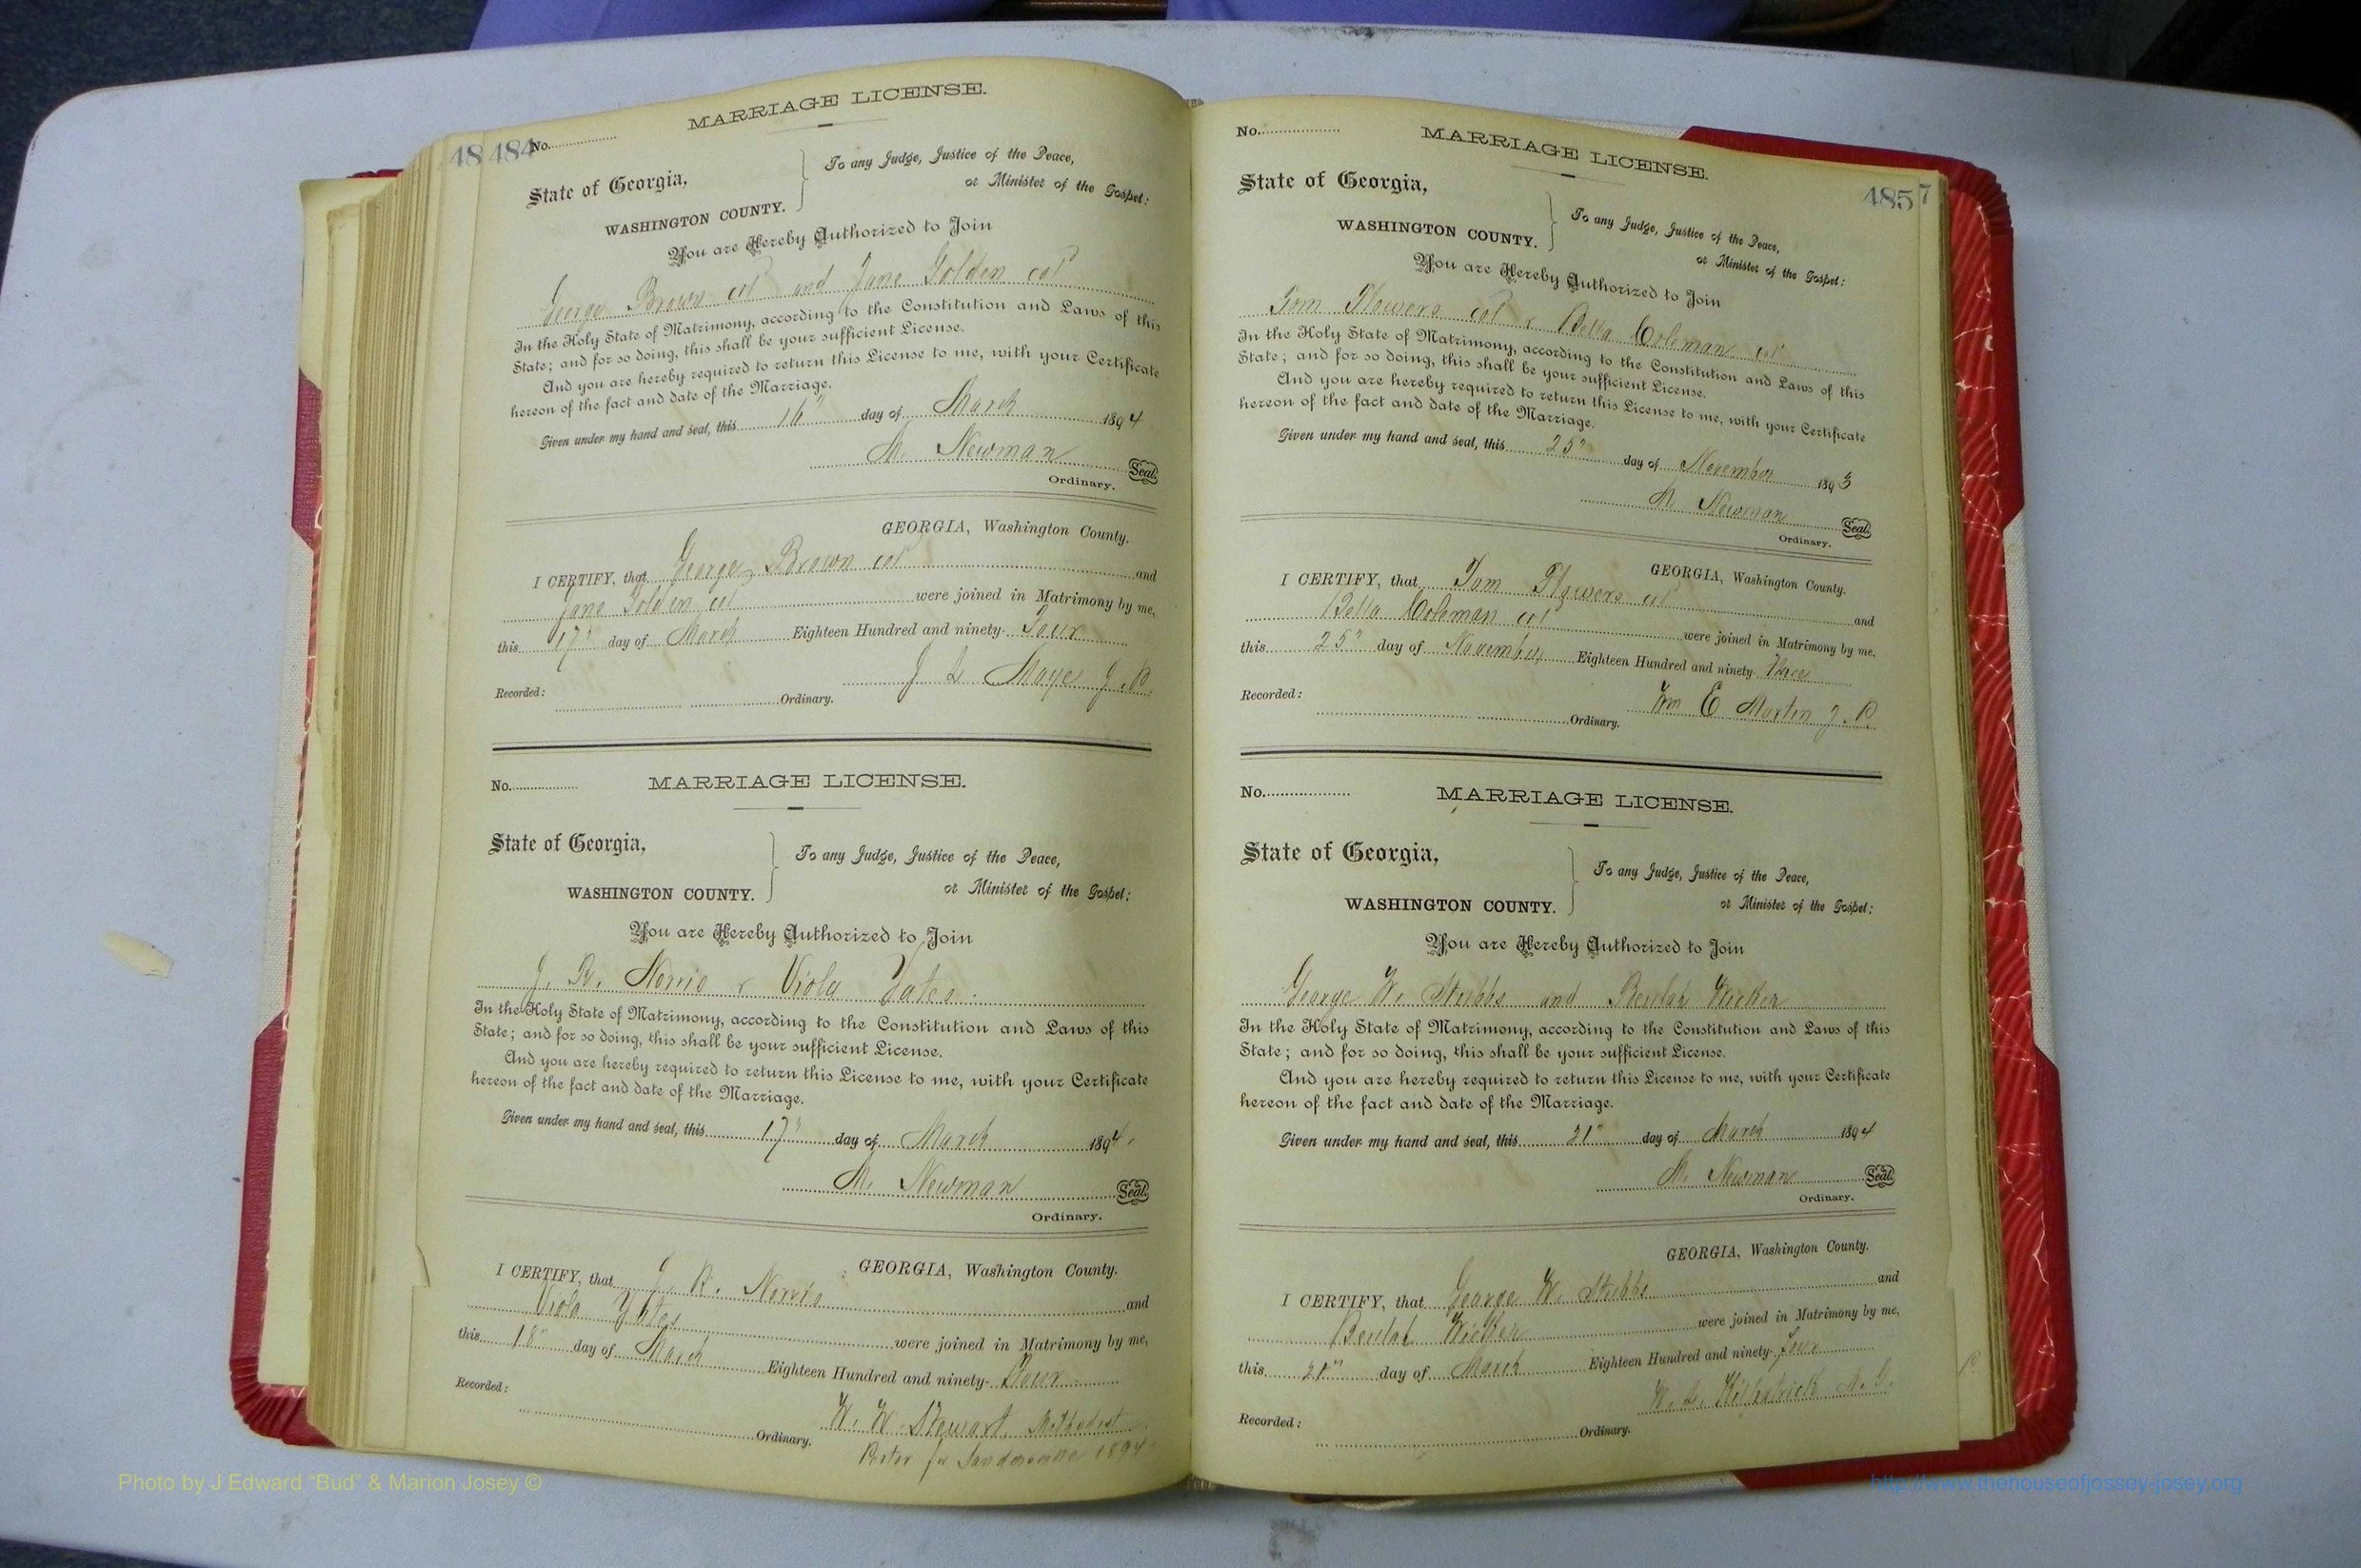 48 484 No.
MARRIAGE LICENSE.
State of Georgia,
WASHINGTON COUNTY.
To any Judge, Justice of the Peace,
or Minister of the Gospel:
You are Hereby Authorized to Join
George Brown col and Jane Golden col
In the Holy State of Matrimony, according to the Constitution and Laws of this
State; and for so doing, this shall be your sufficient License.
And you are hereby required to return this License to me, with your Certificate
hereon of the fact and date of the Marriage.
Given under my hand and seal, this 16" day of March 1894
M. Newman Seal.
Ordinary.
GEORGIA, Washington County.
I CERTIFY, that George Brown col and
Jane Golden col were joined in Matrimony by me,
this 17" day of March Eighteen Hundred and ninety- Four
J L Maye J.P.
Recorded: Ordinary.
No. MARRIAGE LICENSE.
State of Georgia,
WASHINGTON COUNTY.
To any Judge, Justice of the Peace,
or Minister of the Gospel:
You are Hereby Authorized to Join
J. R. Norris & Viola Yates.
In the Holy State of Matrimony, according to the Constitution and Laws of this
State; and for so doing, this shall be your sufficient License.
And you are hereby required to return this License to me, with your Certificate
hereon of the fact and date of the Marriage.
Given under my hand and seal, this 17" day of March 1894.
M. Newman Seal.
Ordinary.
GEORGIA, Washington County.
I CERTIFY, that J. R. Norris and
Viola Yates were joined in Matrimony by me,
this 18" day of March Eighteen Hundred and ninety- Four
Recorded: Ordinary.
W. W. Stewart, Methodist
1894
No. MARRIAGE LICENSE.
485 7
State of Georgia,
WASHINGTON COUNTY.
To any Judge, Justice of the Peace,
or Minister of the Gospel:
You are Hereby Authorized to Join
Tom Flowers col & Bella Coleman col
In the Holy State of Matrimony, according to the Constitution and Laws of this
State; and for so doing, this shall be your sufficient License.
And you are hereby required to return this License to me, with your Certificate
hereon of the fact and date of the Marriage.
Given under my hand and seal, this 25" day of November 1893
M. Newman Seal.
Ordinary.
GEORGIA, Washington County.
I CERTIFY, that Tom Flowers col and
Bella Coleman col were joined in Matrimony by me,
this 25" day of November Eighteen Hundred and ninety Three
Wm E Martin J.P.
Recorded: Ordinary.
No. MARRIAGE LICENSE.
State of Georgia,
WASHINGTON COUNTY.
To any Judge, Justice of the Peace,
or Minister of the Gospel:
You are Hereby Authorized to Join
George W. Stubbs and Beulah Wicker
In the Holy State of Matrimony, according to the Constitution and Laws of this
State; and for so doing, this shall be your sufficient License.
And you are hereby required to return this License to me, with your Certificate
hereon of the fact and date of the Marriage.
Given under my hand and seal, this 21" day of March 1894
M. Newman Seal.
Ordinary.
GEORGIA, Washington County.
I CERTIFY, that George W. Stubbs and
Beulah Wicker were joined in Matrimony by me,
this 21" day of March Eighteen Hundred and ninety- four
W. L. Kilpatrick M.G.
Recorded: Ordinary.
Photo by J Edward "Bud" & Marion Josey ©
http://www.thehouseofjossey-josey.org